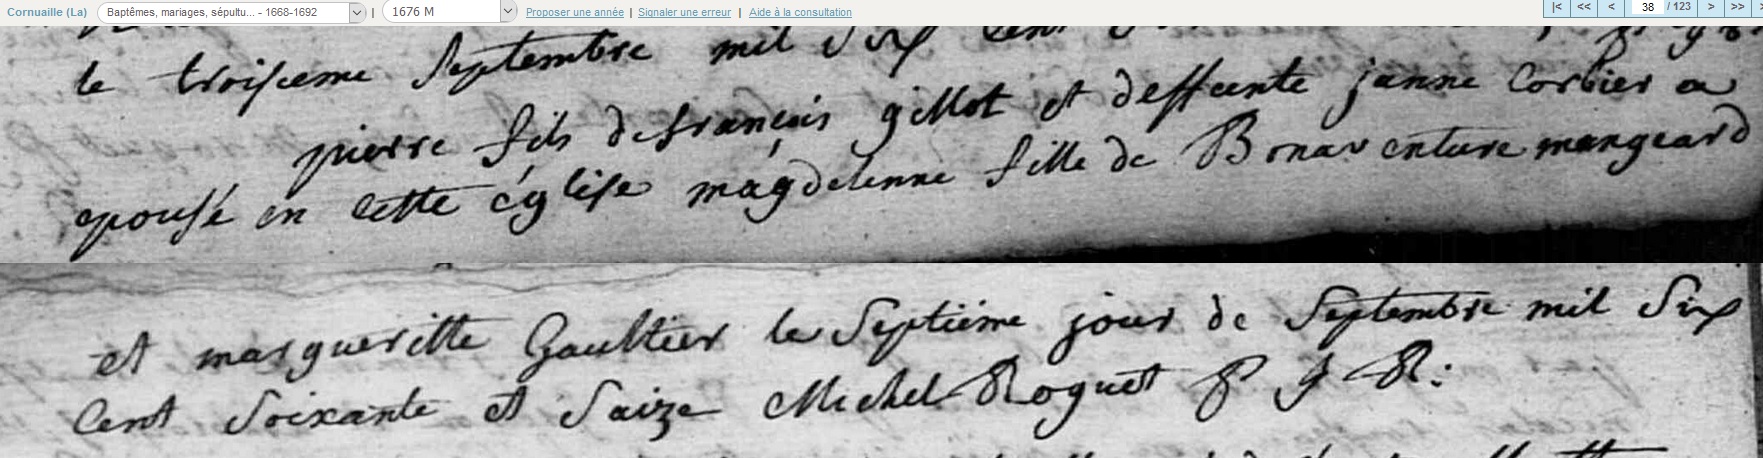 Cornuaille (La) Baptêmes, mariages, sépultu... - 1668-1692 | 1676 M Proposer une année | Signaler une erreur | Aide à la consultation |< << < 38 / 123 > >>
le troisieme Septembre mil Six Cent
pierre fils de françois gillot et deffunte janne Corbier a
epousé en cette église magdelenne fille de Bonaventure mangeard
et margueritte Gaultier le Septiéme jour de Septembre mil Six
Cent Soixante et Saize Michel Roguet P J R: